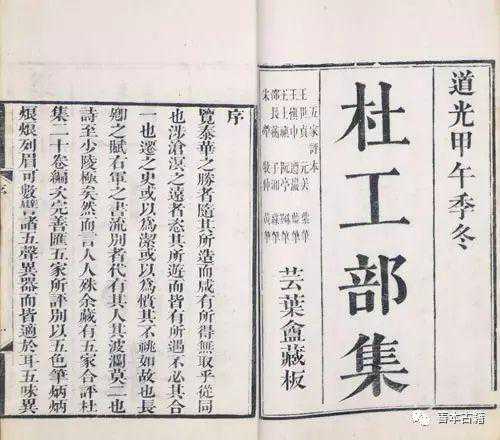 道光甲午季冬
杜工部集
五家評本
王世貞 元美 紫筆
王慎中 遵巖 藍筆
王士禛 阮亭
邵長蘅 子湘
宋犖 牧仲 黃筆
芸葉盦藏板
序
覽泰華之勝者隨其所造而咸有所得無取乎從同
也涉滄溟之遠者恣其所遊而皆有所遇不必其合
一也遷之史或以為潔或以為憤其不祧如故也長
卿之賦右軍之書流別者代有其人其波瀾莫二也
詩至少陵極矣然而言人人殊余藏有五家合評杜
集二十卷編次完善匯五家所評別以五色筆炳炳
烺烺列眉可數譬諸五聲異器而皆適於耳五味異
序
善本古籍